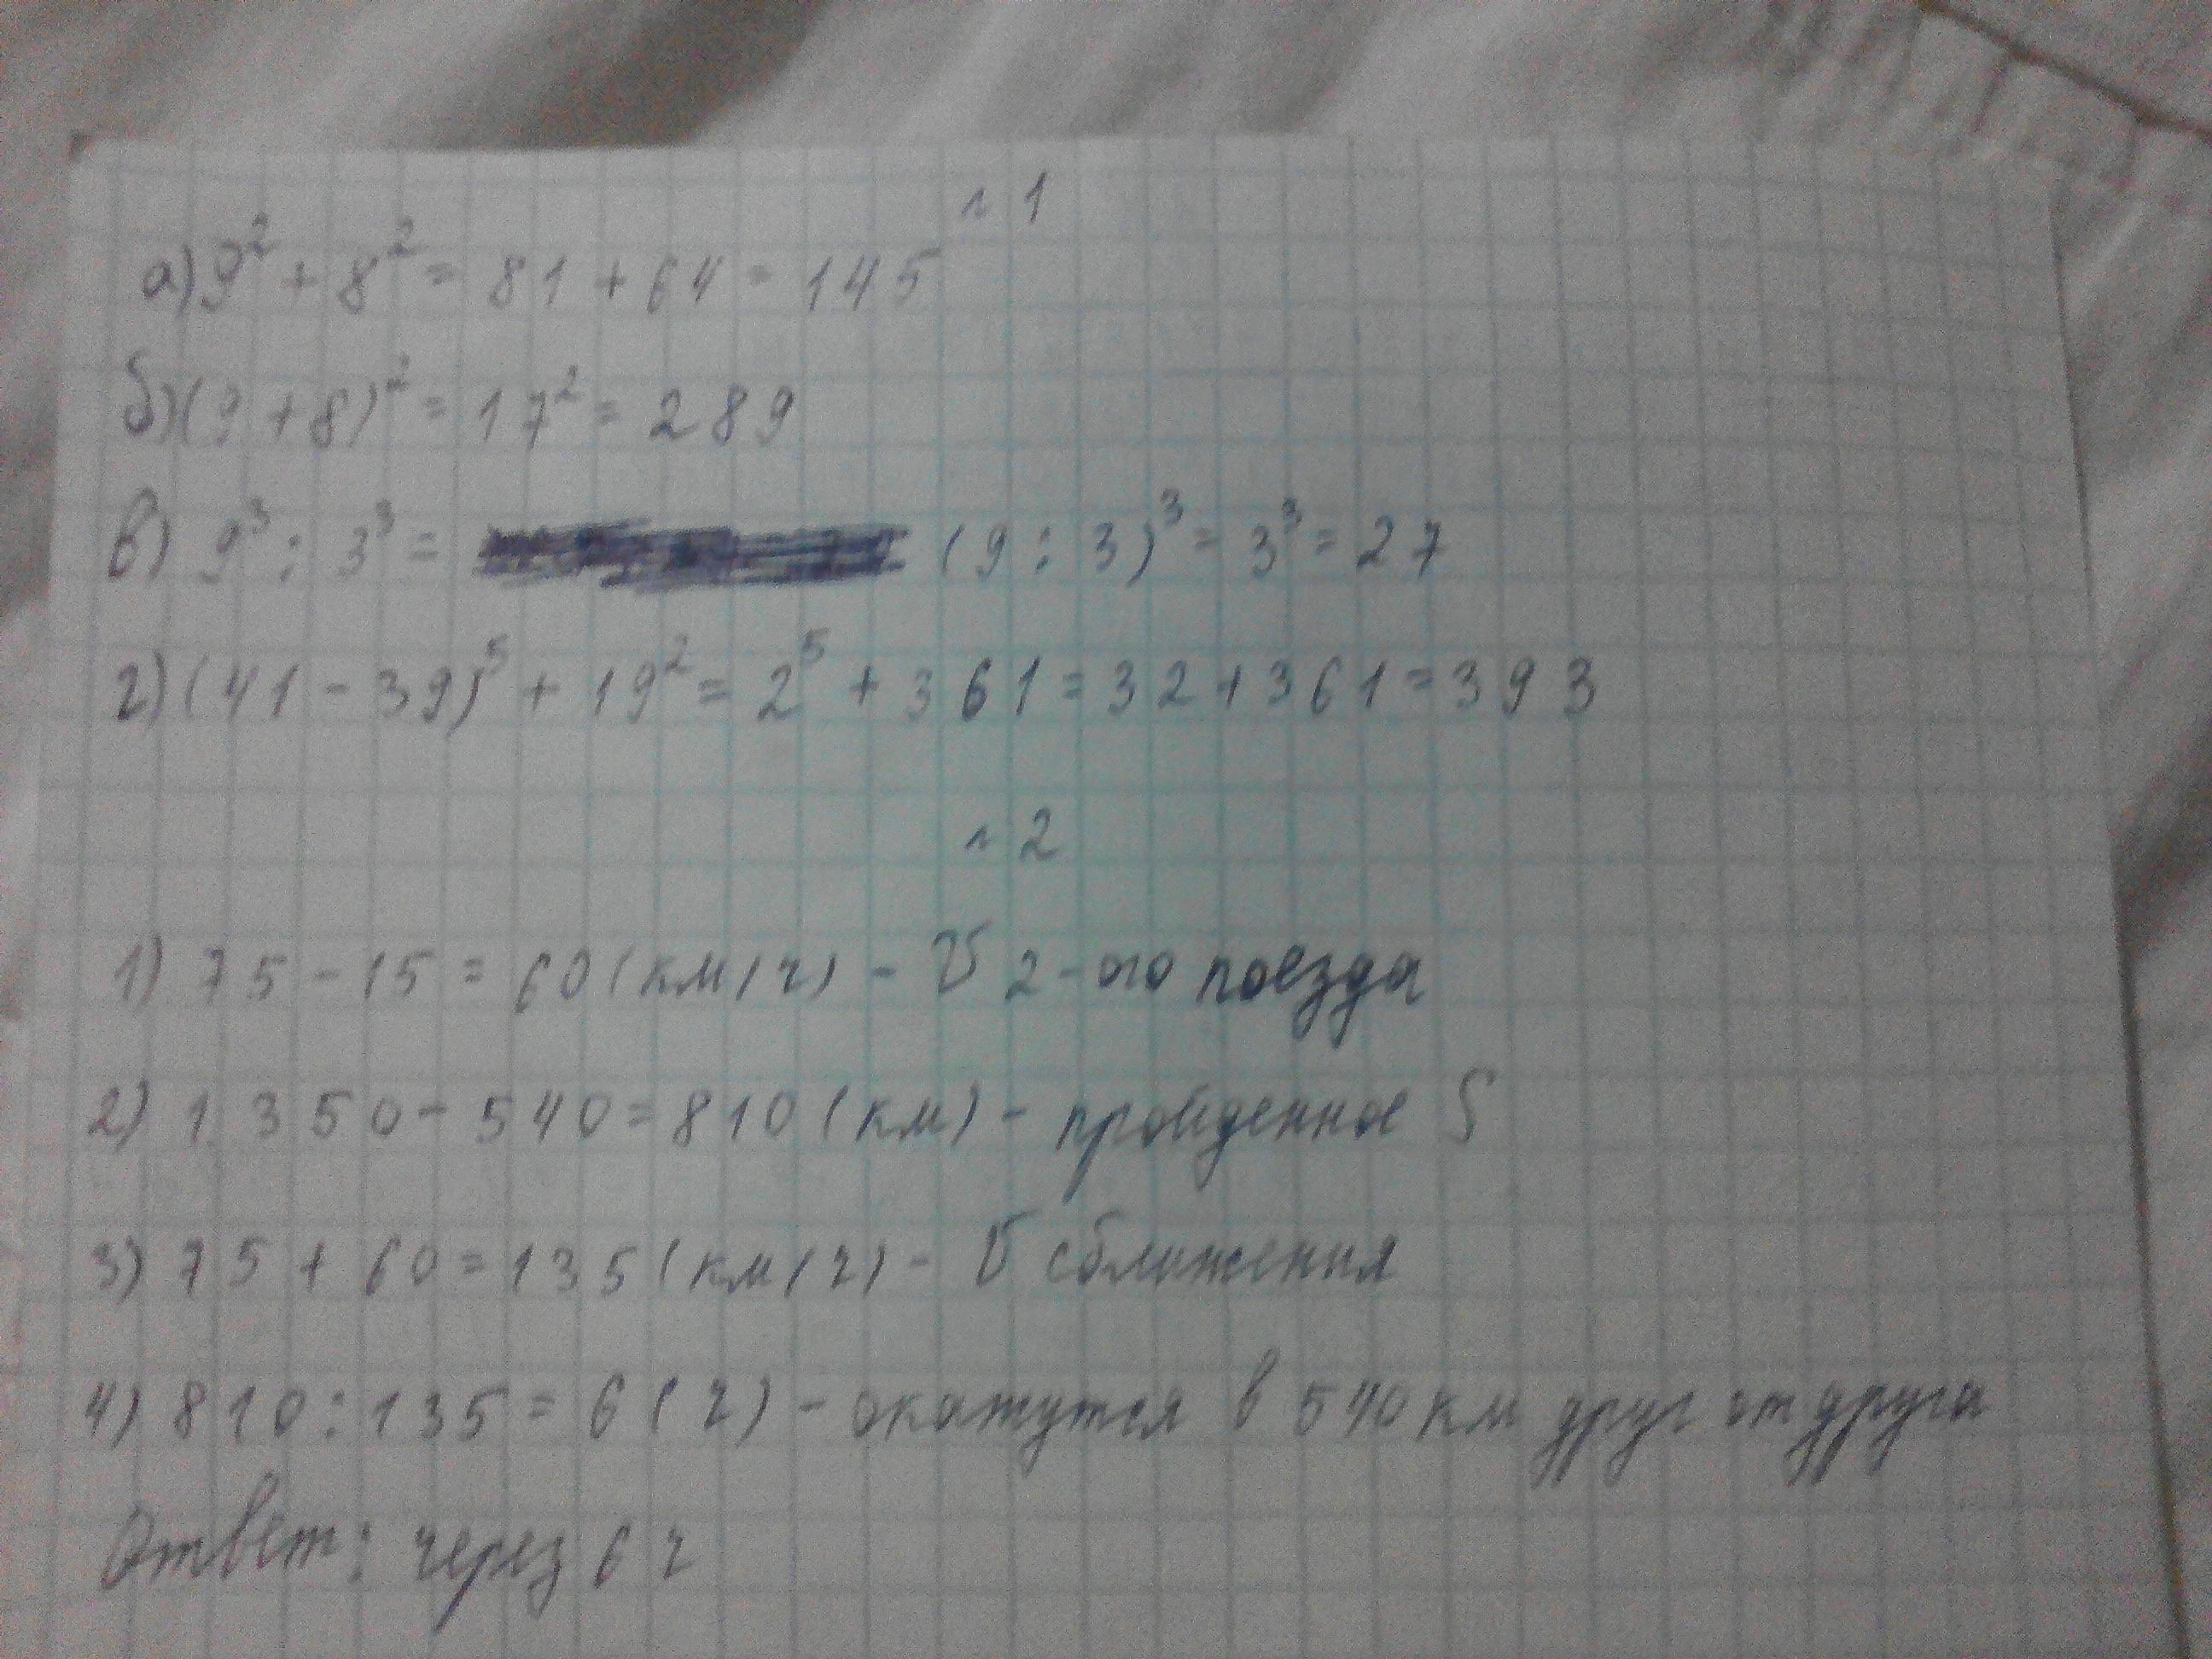 № 1
а) 9² + 8² = 81 + 64 = 145
б) (9 + 8)² = 17² = 289
в) 9³ : 3³ = (9 : 3)³ = 3³ = 27
г) (41 - 39)⁵ + 19² = 2⁵ + 361 = 32 + 361 = 393
№ 2
1) 75 - 15 = 60 (км/ч) - V 2-ого поезда
2) 1 350 - 540 = 810 (км) - пройденное S
3) 75 + 60 = 135 (км/ч) - V сближения
4) 810 : 135 = 6 (ч) - окажутся в 540 км друг от друга
Ответ: через 6 ч